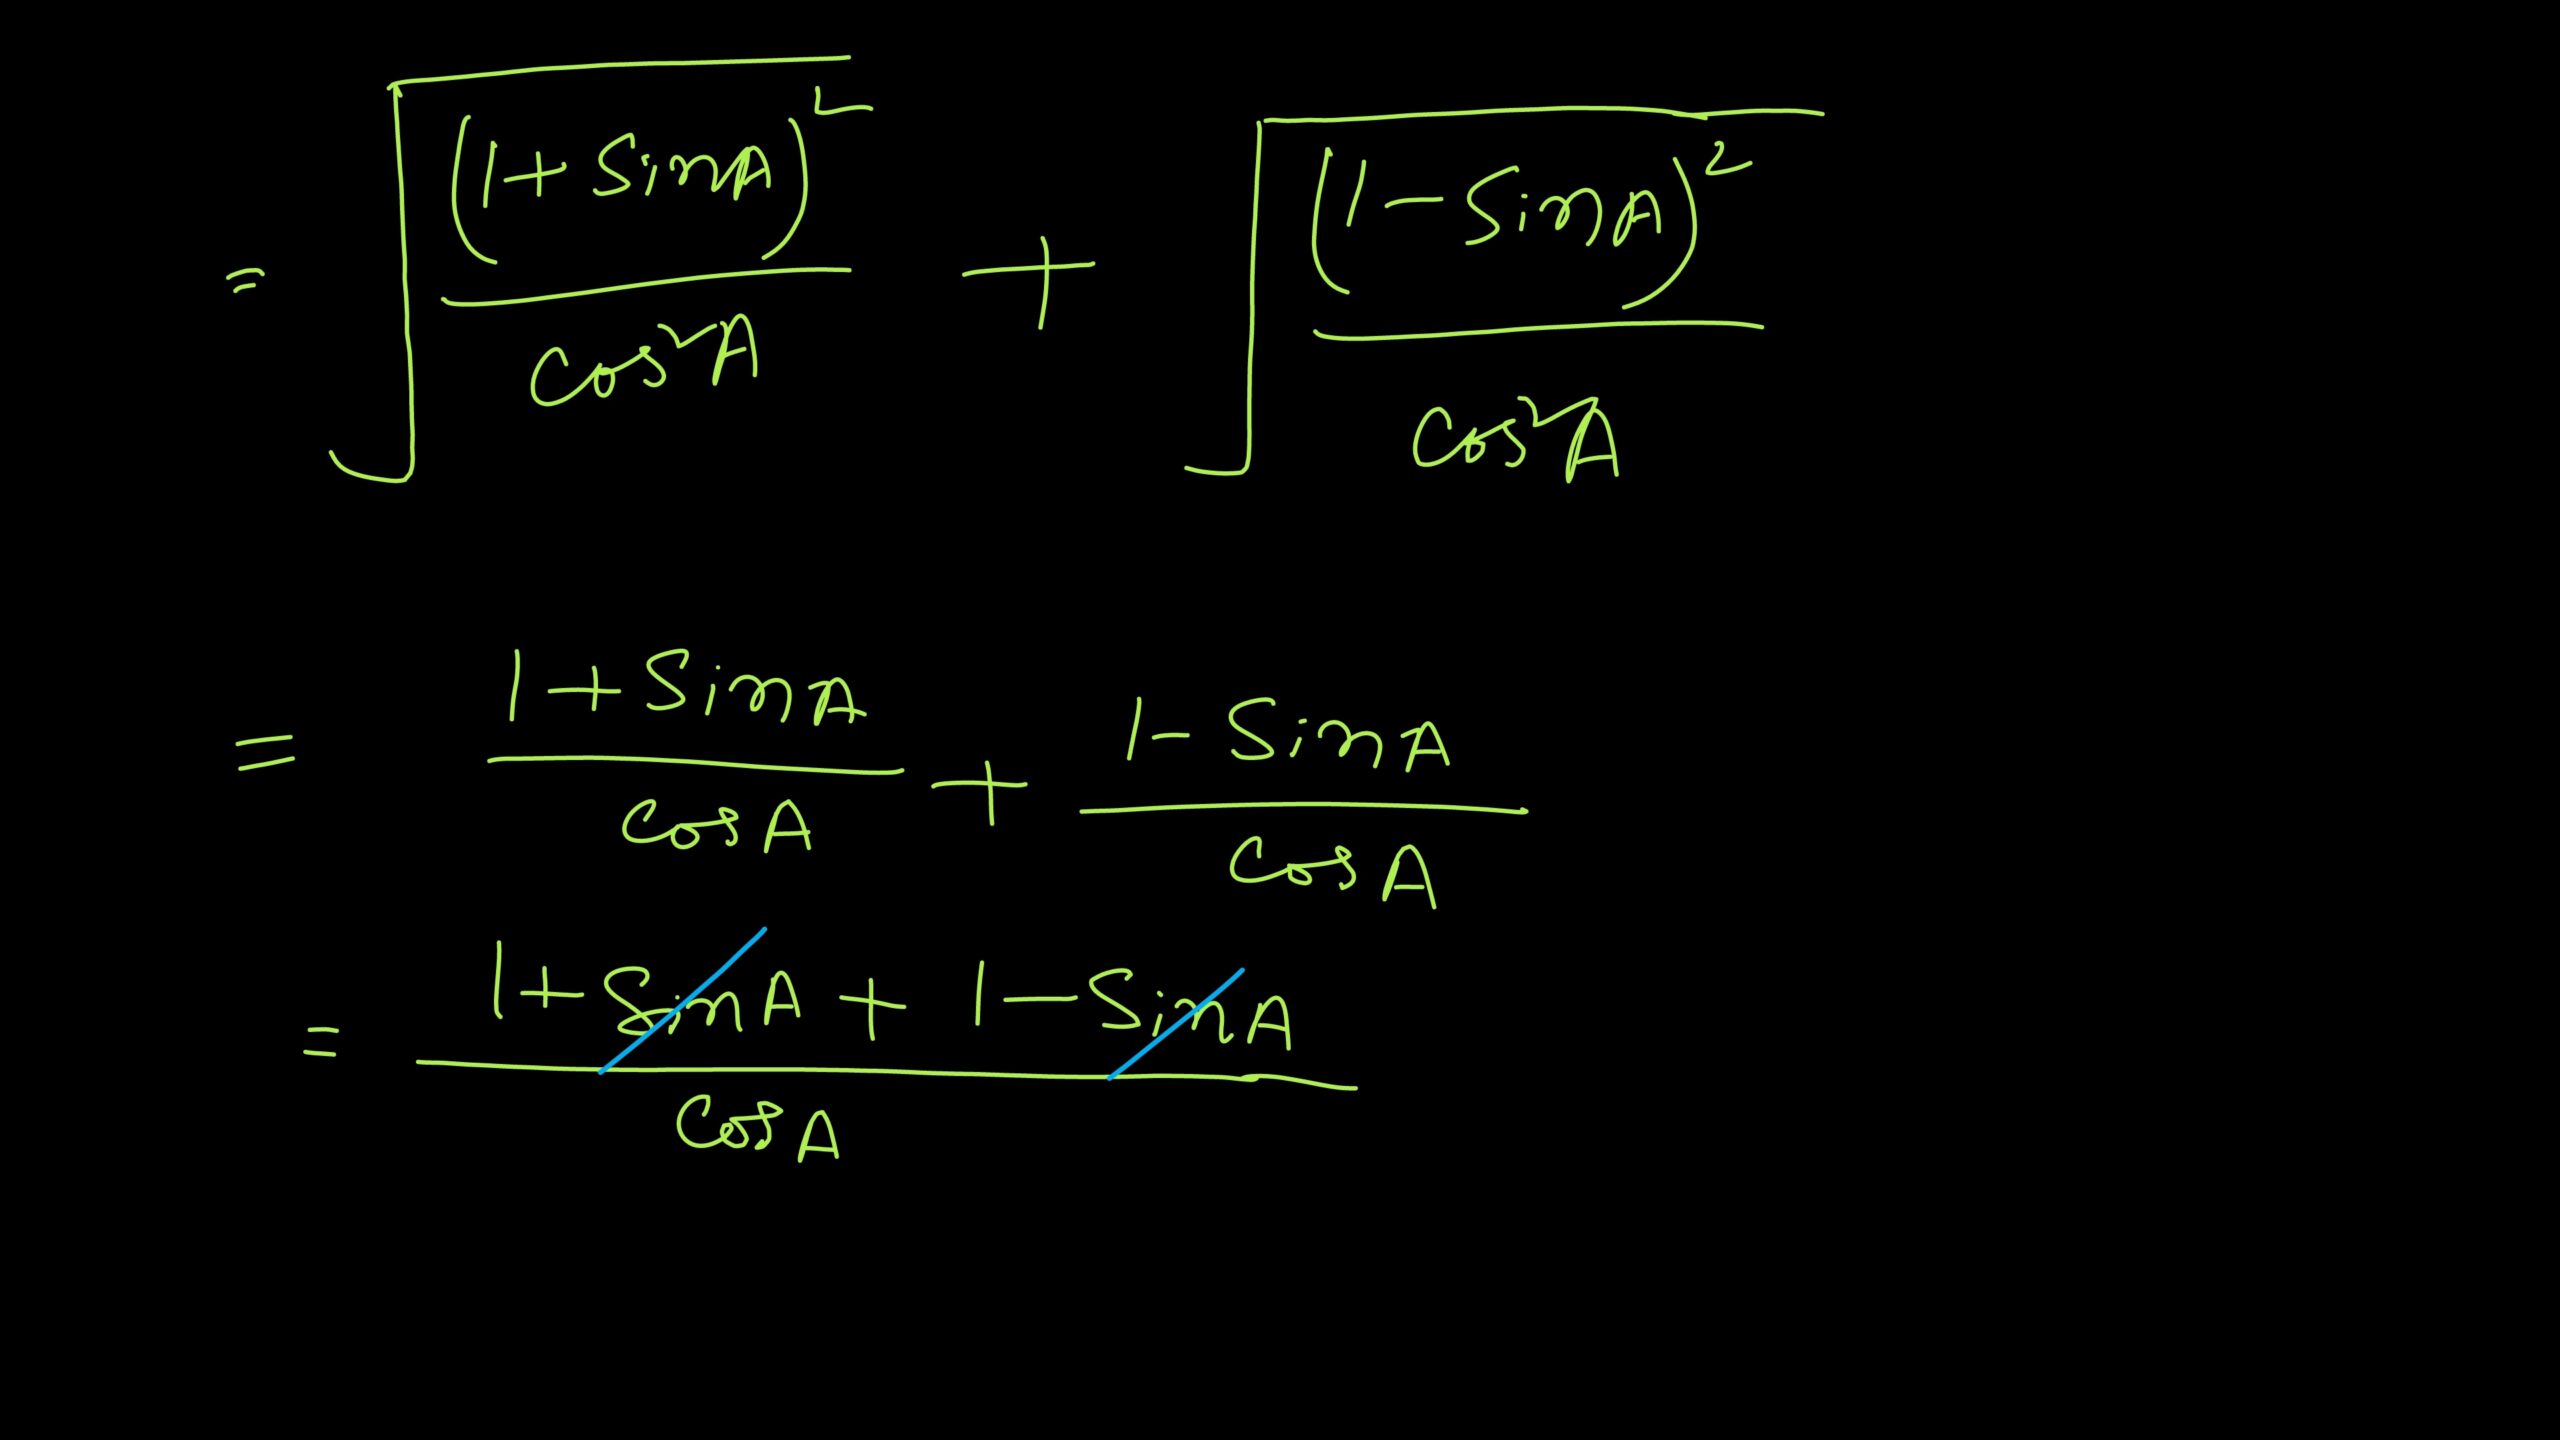 = √((1+SinA)²/Cos²A) + √((1-SinA)²/Cos²A)
= (1+SinA)/CosA + (1-SinA)/CosA
= (1+SinA+1-SinA)/CosA